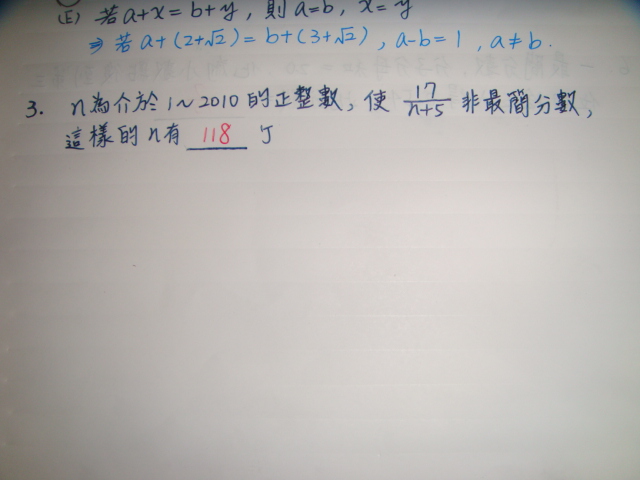 (E) 若 a+x = b+y , 則 a=b , x=y
⇒ 若 a+(2+√2) = b+(3+√2) , a-b=1 , a≠b.
3. n為介於1~2010的正整數, 使 17/(n+5) 非最簡分數,
這樣的n有 118 個